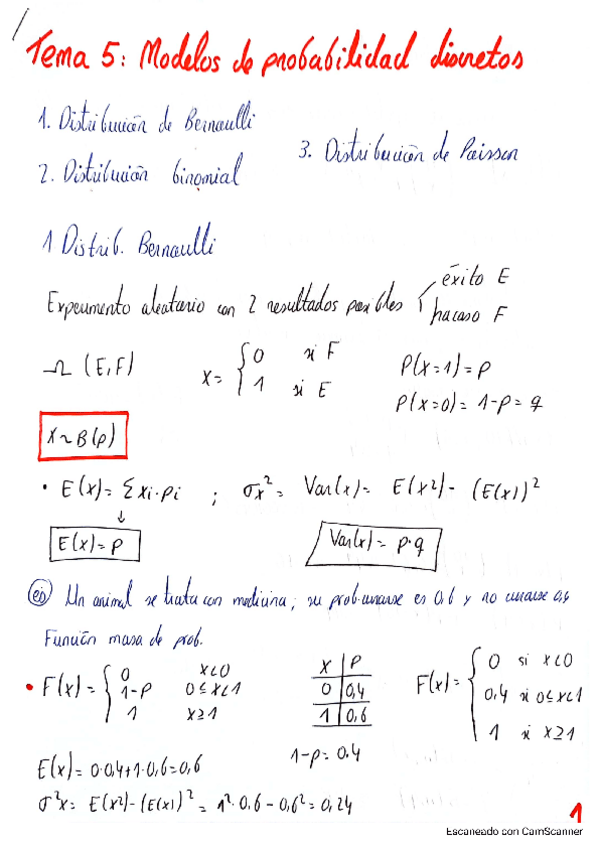 Tema 5: Modelos de probabilidad discretos
1. Distribución de Bernoulli
2. Distribución binomial
3. Distribución de Poisson
1 Distrib. Bernoulli
Experimento aleatorio con 2 resultados posibles { éxito E
fracaso F
Ω (E,F)
X = { 0 si F
1 si E
P(X=1)=p
P(X=0)=1-p=q
X~B(p)
• E(x)= Σxi·pi ; σx²= Var(x)= E(x²)- (E(x))²
↓
E(x)=p
Var(x)= p·q
ej Un animal se trata con medicina; su prob. curarse es 0,6 y no curarse 0,4
Función masa de prob.
• F(x)= { 0 x<0
1-p 0≤x<1
1 x≥1
X | P
0 | 0,4
1 | 0,6
1-p=0.4
F(x)= { 0 si x<0
0,4 si 0≤x<1
1 si x≥1
E(x)= 0·0,4+1·0,6=0,6
σ²x= E(x²)-(E(x))²= 1²·0.6-0,6²=0,24
1
Escaneado con CamScanner